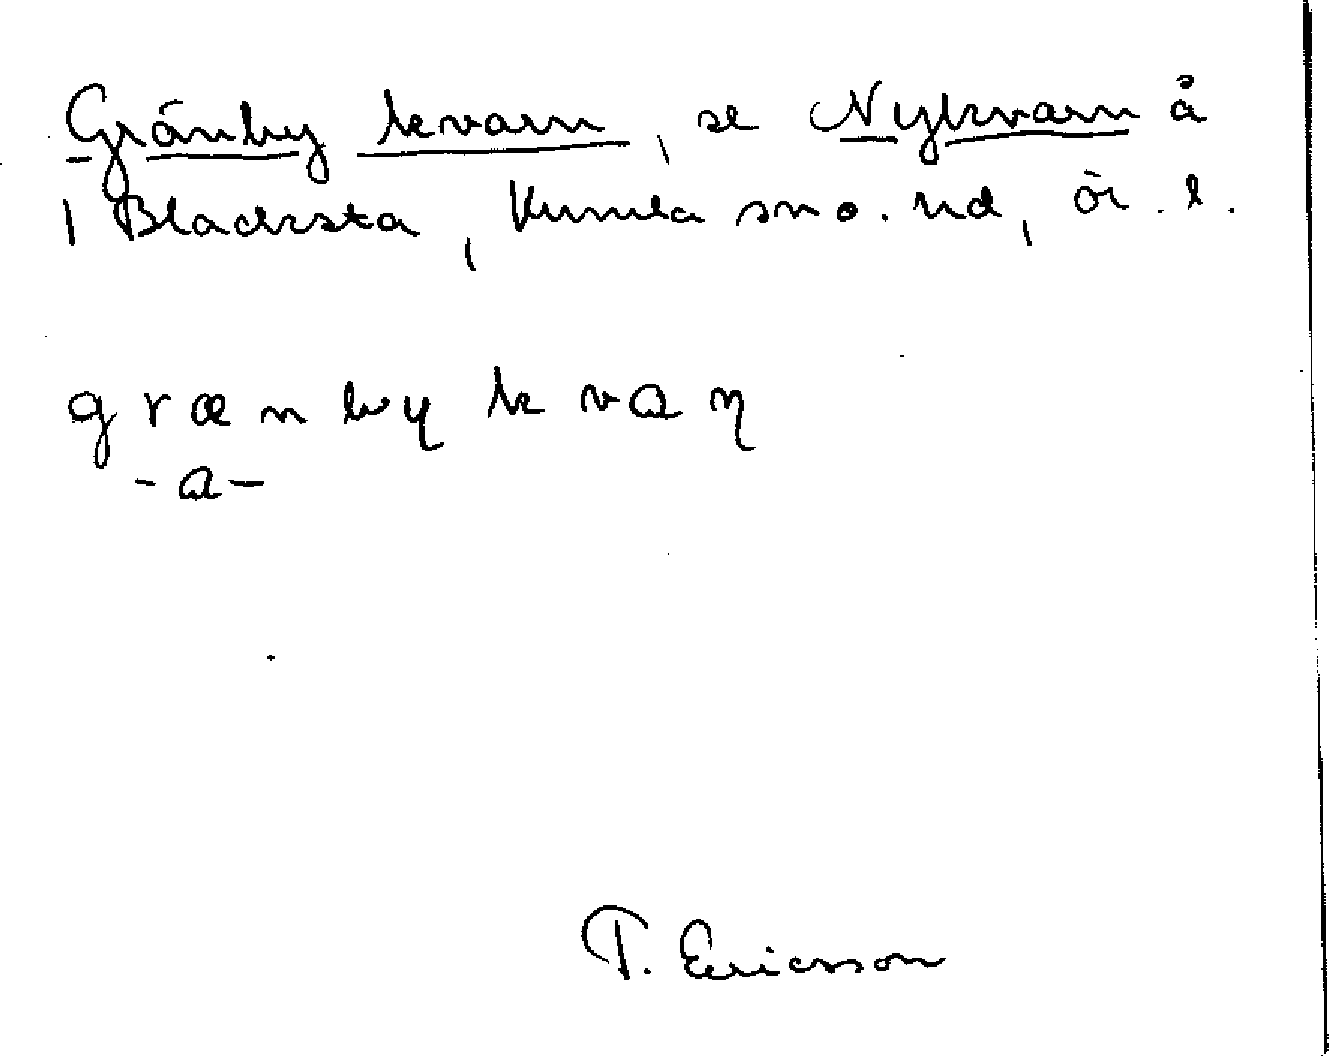 Grånby kvarn, se Nykvarn å
Blacksta, Kumla sn o. hd, Ör. l.
g r æ n b y k v a ɳ
- a -
T. Ericsson